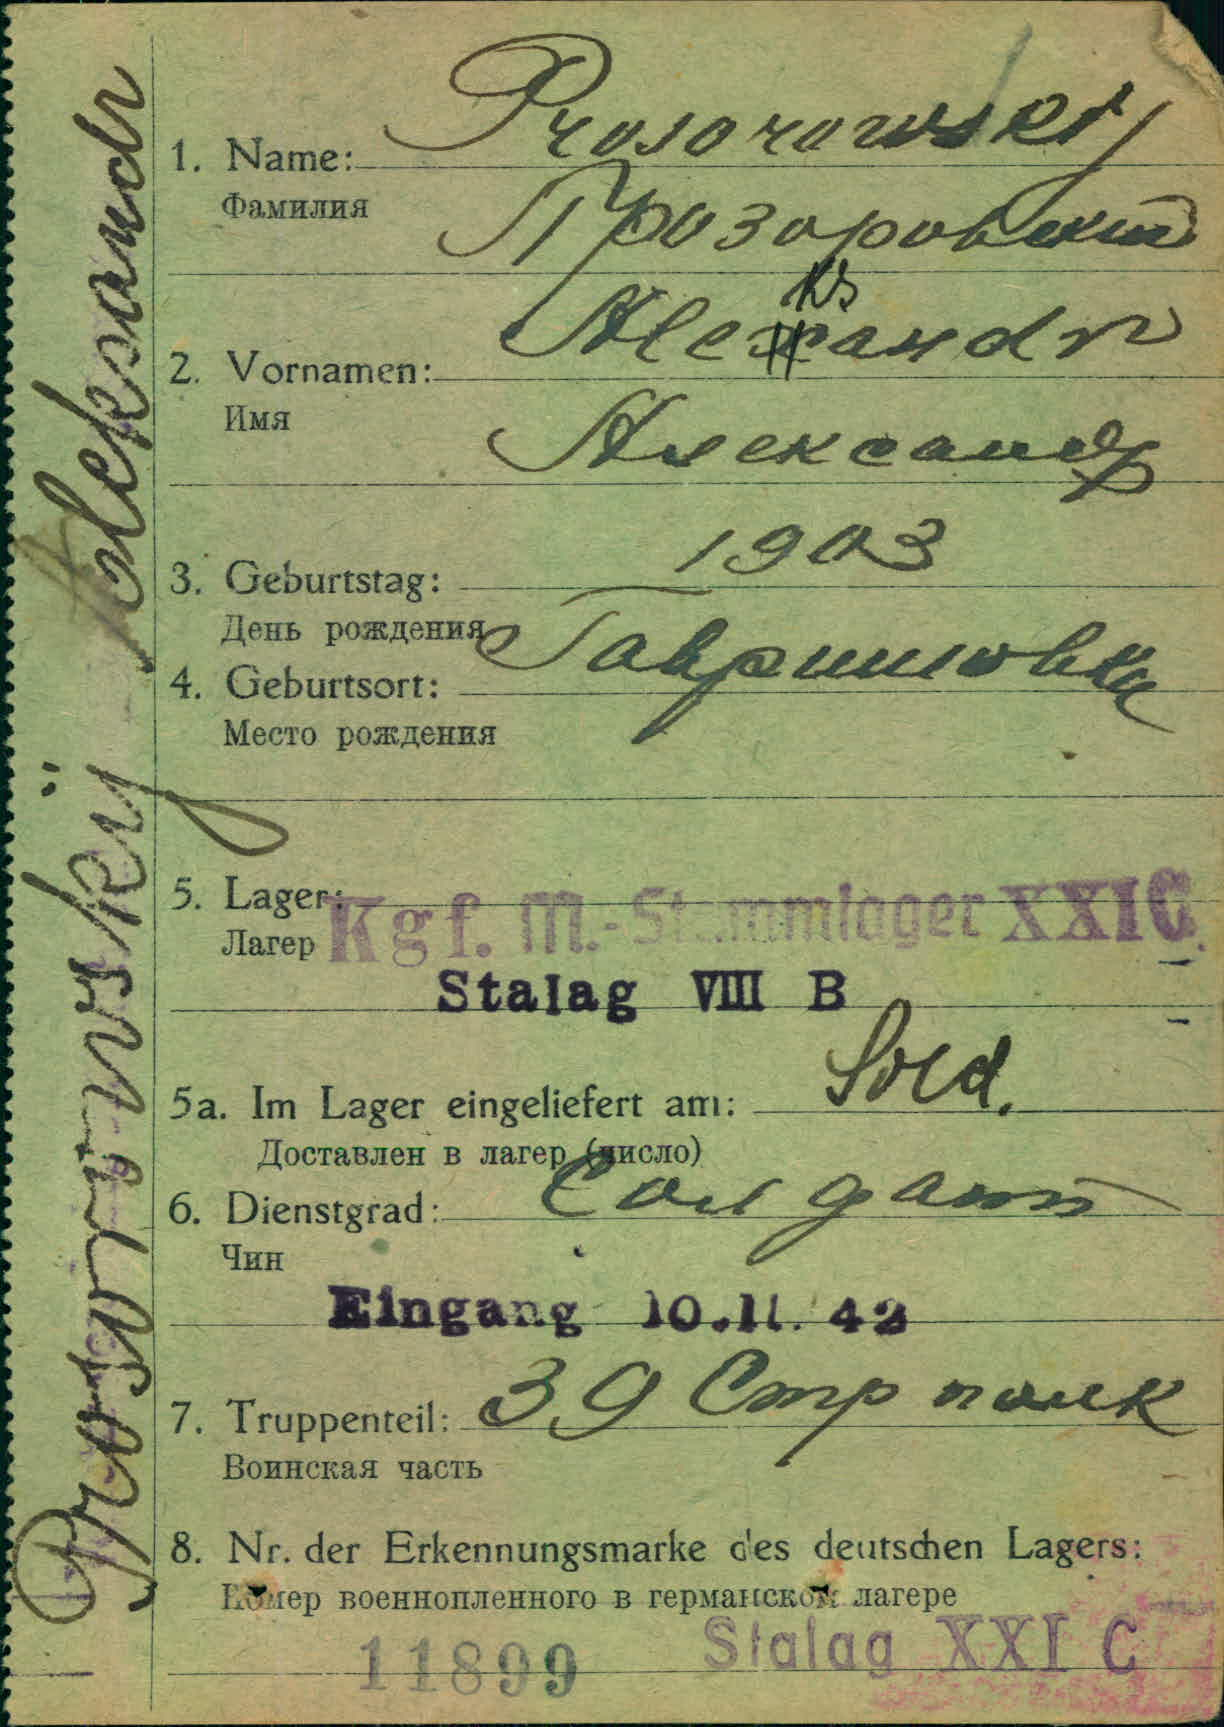 Prosorowskij Aleksandr
1. Name: Prosorowskij
Фамилия Прозоровский
ks
2. Vornamen: Alexandr
Имя
Александр
1903
3. Geburtstag:
День рождения
Гавришовка
4. Geburtsort:
Место рождения
5. Lager: Kgf. M.-Stammlager XXIC.
Лагер
Stalag VIII B
Sold.
5a. Im Lager eingeliefert am:
Доставлен в лагер (число)
6. Dienstgrad: Солдат
Чин
Eingang 10.11.42
7. Truppenteil: 39 Стр полк
Воинская часть
8. Nr. der Erkennungsmarke des deutschen Lagers:
Номер военнопленного в германском лагере
11899 Stalag XXI C